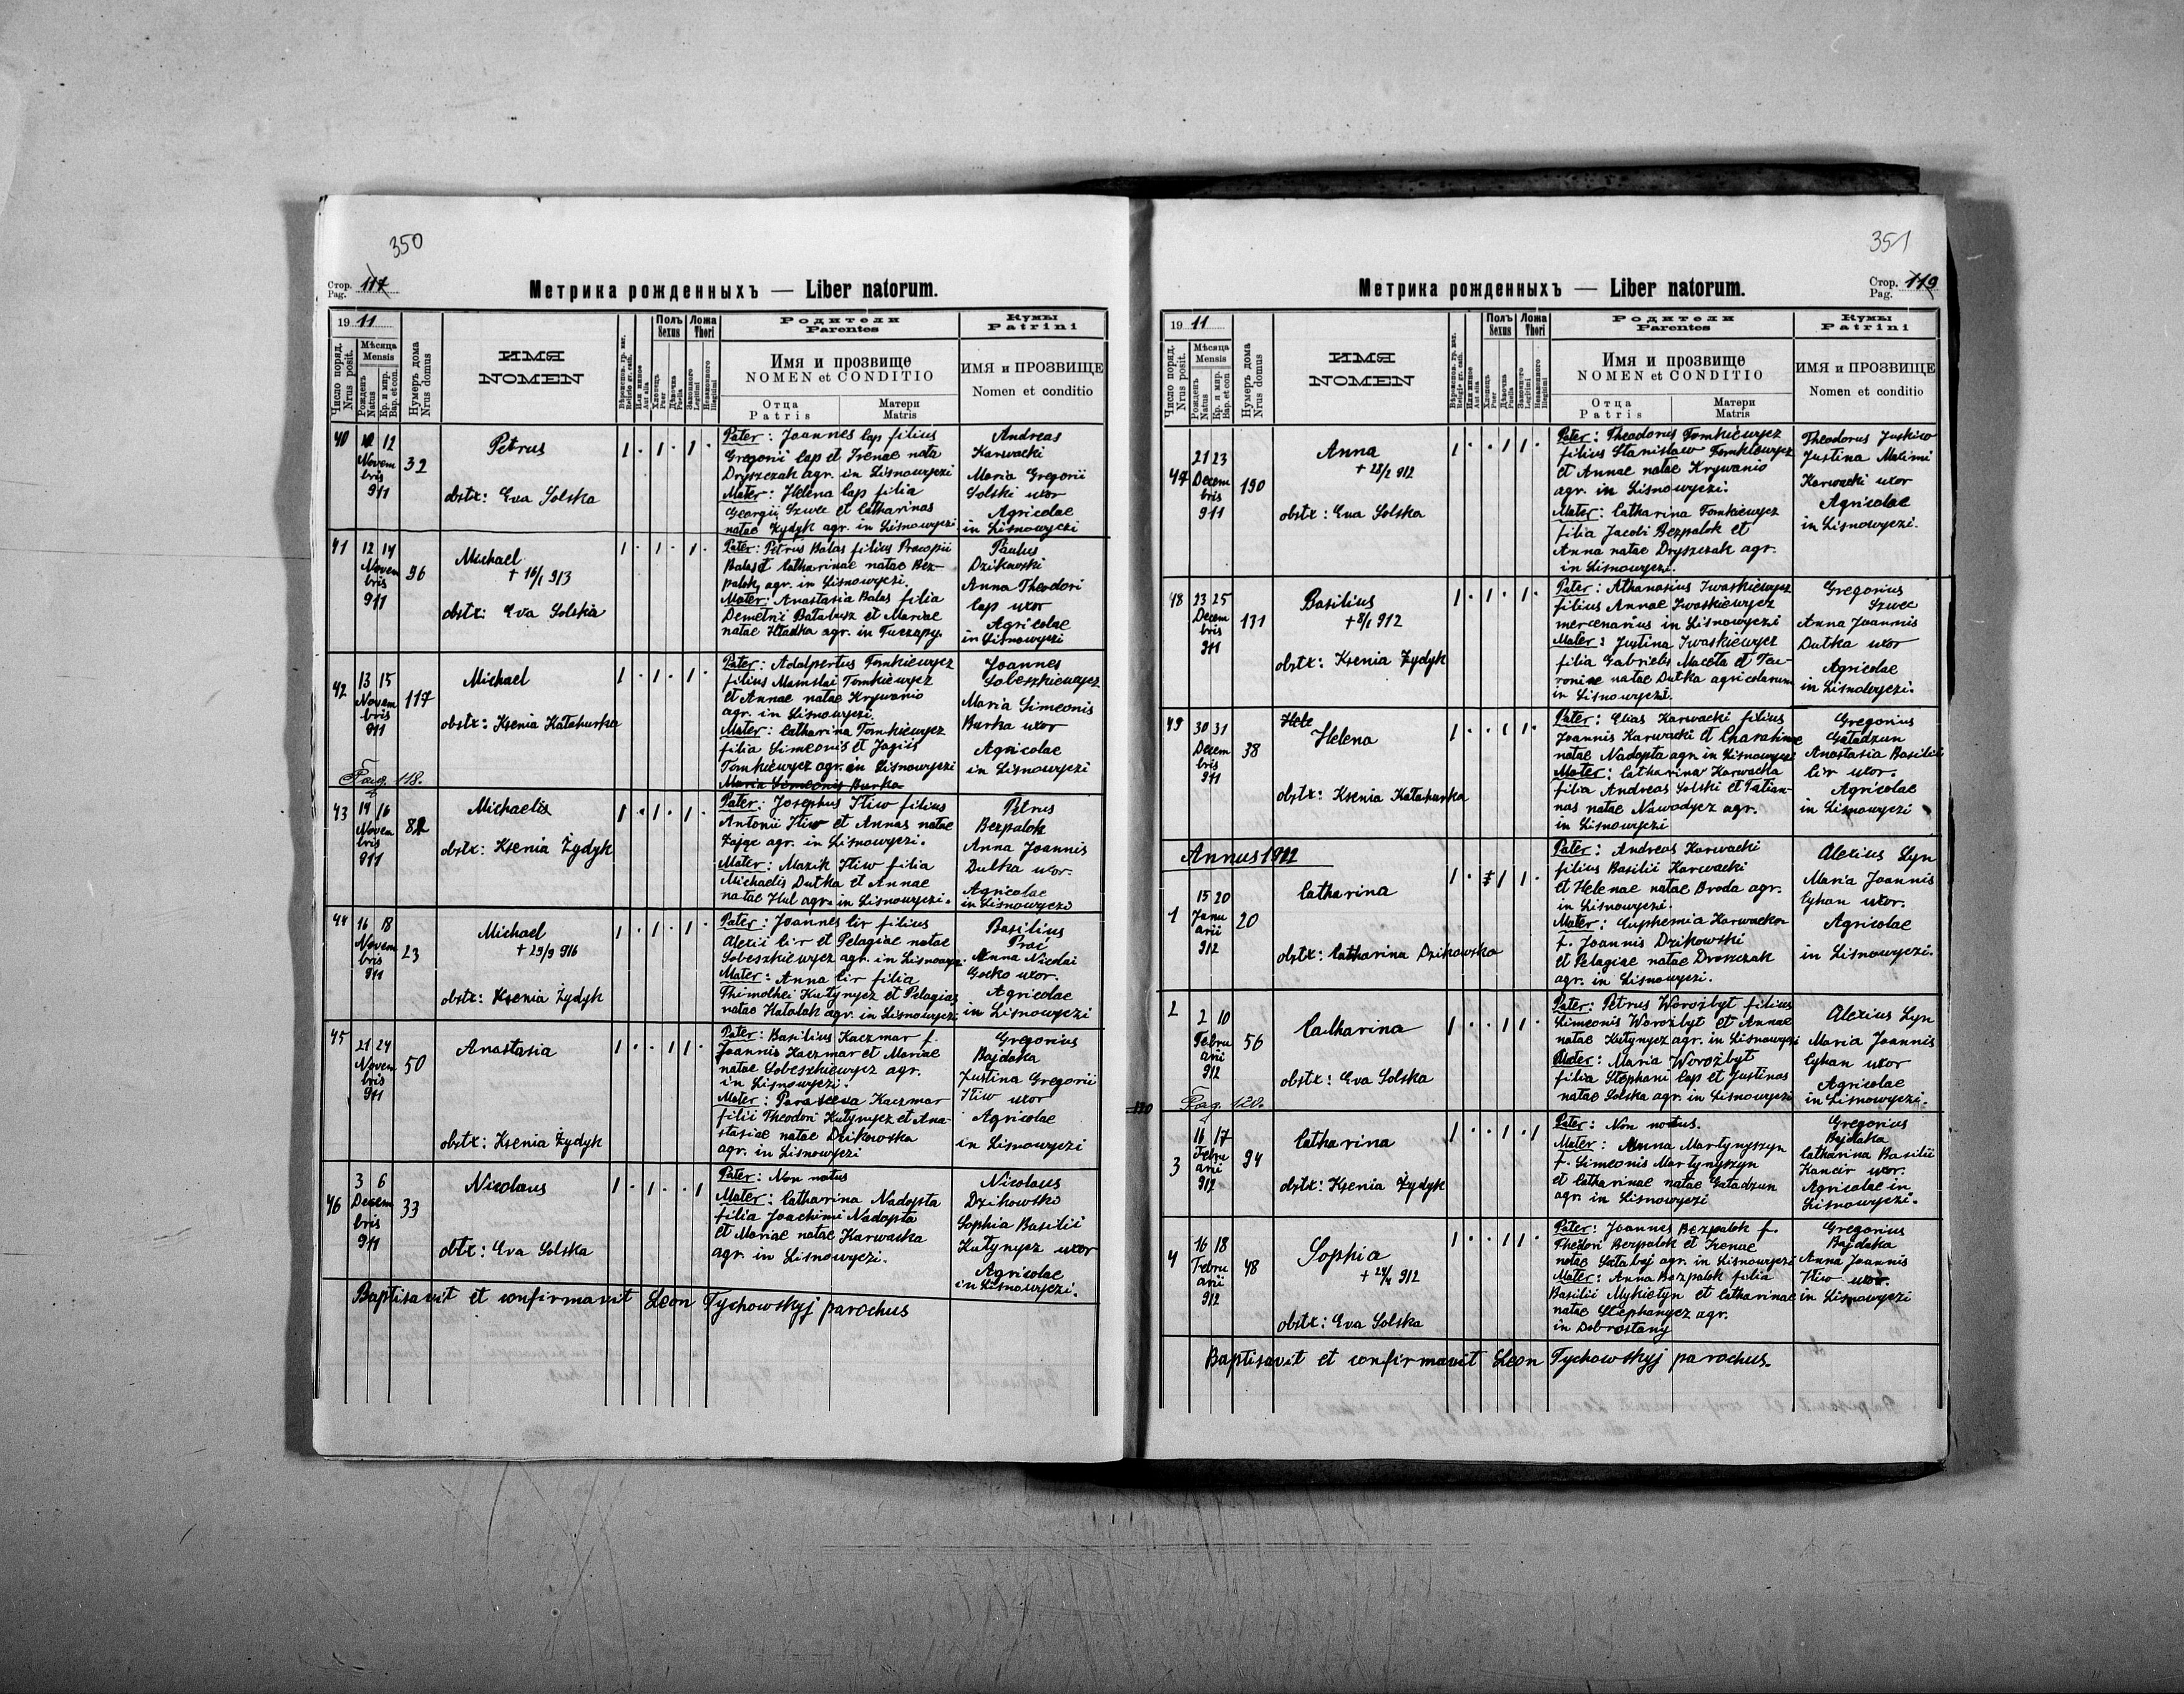 350
Стор. Pag. 117
Метрика рожденныхъ — Liber natorum.
19 11
Число поряд. Nrus posit.
Мѣсяца Mensis
Рожденъ Natus
Кр. и мир. Bap. et con.
Нумеръ дома Nrus domus
ИМЯ
NOMEN
Вѣроиспов. гр. кат. Religio gr. cath.
Или инное Aut alia
Полъ Sexus
Хлопець Puer
Дѣвочка Puella
Ложа Thori
Законного Legitimi
Незаконного Illegitimi
Родители
Parentes
Имя и прозвище
NOMEN et CONDITIO
Отца Patris
Матери Matris
Кумы
Patrini
ИМЯ и ПРОЗВИЩЕ
Nomen et conditio
40
12
Novem
bris
911
32
Petrus
obstx: Eva Solska
Pater: Joannes Cap filius
Gregorii Cap et Irenae nata
Dryszczak agr. in Lisnowyczi
Mater: Helena Cap filia
Georgii Szwec et Catharinas
natae Żydyk agr. in Lisnowyczi.
Andreas
Karwacki
Maria Gregorii
Solski uxor
Agricolae
in Lisnowyczi
41
12 14
Novem
bris
911
96
Michael
+ 16/1 913
obstx: Eva Solska
Pater: Petrus Balas filius Procopii
Balas et Catharinae natae Bez-
palok, agr. in Lisnowyczi.
Mater: Anastasia Balas filia
Demetrii Batabusz et Mariae
natae Hładka agr. in Tuczapy.
Paulus
Dzikowski
Anna Theodori
Cap uxor
Agricolae
in Lisnowyczi
42
13 15
Novem
bris
911
117
Michael
obstx: Ksenia Katahurka
Pater: Adalpertus Tomkiewycz
filius Tomkiewycz
et Annae natae Krywanio
agr. in Lisnowyczi.
Mater: Catharina Tomkiewycz
filia Simeonis et
Tomkiewycz agr. in Lisnowyczi
Maria Simeonis Burka
Joannes
Sobeszkiewycz
Maria Simeonis
Burka uxor
Agricolae
in Lisnowyczi
Pag. 118.
43
14 16
Novem
bris
911
82
Michaelis
obstx: Ksenia Żydyk
Pater: Josephus Itiw filius
Antonii Itiw et Annas natae
Zając agr. in Lisnowyczi.
Mater: Mazik Itiw filia
Michaelis Dutka et Annae
natae Hul agr. in Lisnowyczi.
Petrus
Bezpalok
Anna Joannis
Dutka uxor.
Agricolae
in Lisnowyczi
44
16 18
Novem
bris
911
23
Michael
+ 29/9 916
obstx: Ksenia Żydyk
Pater: Joannes Cir filius
Alexii Cir et Pelagiae natae
Sobeszkiewycz agr. in Lisnowycz.
Mater: Anna Cir filia
Thimothei Kutynycz et Pelagias
natae Hatalak agr. in Lisnowyczi
Basilius
Anna Nicolai
Gocko uxor.
Agricolae
in Lisnowyczi
45
21 24
Novem
bris
911
50
Anastasia
obstx: Ksenia Żydyk
Pater: Basilius Kaczmar f.
Joannis Kaczmar et Mariae
natae Sobeszkiewycz agr.
in Lisnowyczi.
Mater: Parasceva Kaczmar
filii Theodori Kutynycz et Ana-
stasiae natae Dzikowska
agr. in Lisnowyczi
Gregorius
Bajdaka
Justina Gregorii
Itiw uxor
Agricolae
in Lisnowyczi
46
3 6
Decem
bris
911
33
Nicolaus
obtx: Eva Solska
Pater: Non notus
Mater: Catharina Nadopta
filia Joachimi Nadopta
et Mariae natae Karwacka
agr. in Lisnowyczi.
Nicolaus
Dzikowsko
Sophia Basilii
Kutynycz uxor
Agricolae
in Lisnowyczi.
Baptisavit et confirmavit Leon Tychowskyj parochus
351
Метрика рожденныхъ — Liber natorum.
Стор. Pag. 119
19 11
Число поряд. Nrus posit.
Мѣсяца Mensis
Рожденъ Natus
Кр. и мир. Bap. et con
Нумеръ дома Nrus domus
ИМЯ
NOMEN
Вѣроиспов. гр. кат. Religio gr. cath.
Или инное Aut alia
Полъ Sexus
Хлопець Puer
Дѣвочка Puella
Ложа Thori
Законного Legitimi
Незаконного Illegitimi
Родители
Parentes
Имя и прозвище
NOMEN et CONDITIO
Отца Patris
Матери Matris
Кумы
Patrini
ИМЯ и ПРОЗВИЩЕ
Nomen et conditio
47
21 23
Decem
bris
911
190
Anna
+ 28/2 912
obstx: Eva Solska
Pater: Theodorus Tomkiewycz
filius Stanislaw Tomkiewycz
et Annae natae Krywanio
agr. in Lisnowyczi.
Mater: Catharina Tomkiewycz
filia Jacobi Bezpalok et
Anna natae Dryszczak agr.
in Lisnowyczi.
Theodorus Juskiw
Justina Maximi
Karwacki uxor
Agricolae
in Lisnowyczi.
48
23 25
Decem
bris
911
131
Basilius
+ 8/1 912
obstx: Ksenia Żydyk
Pater: Athanasius Iwaskiewycz
filius Annae Iwaskiewycz
mercenarius in Lisnowyczi
Mater: Justina Iwaskiewycz
filia Gabrielis Maceta et Teu-
roniae natae Dutka agricolarum
in Lisnowyczi.
Gregorius
Szwec
Anna Joannis
Dutka uxor
Agricolae
in Lisnowyczi.
49
30 31
Decem
bris
911
38
Hele
Helena
obstx: Ksenia Katahurka
Pater: Elias Karwacki filius
Joannis Karwacki et Charatinae
natae Nadopta agr. in Lisnowyczi
Mater: Catharina Karwacka
filia Andreas Solski et Tatian-
nas natae Nawodycz agr.
in Lisnowyczi
Gregorius
Gatadzun
Anastasia Basilii
Cir uxor.
Agricolae
in Lisnowyczi
Annus 1912
1
15 20
Janu
arii
912
20
Catharina
obstx: Catharina Dzikowska
Pater: Andreas Karwacki
filius Basilii Karwacki
et Helenae natae Broda agr.
in Lisnowyczi.
Mater: Euphemia Karwacka
f. Joannis Dzikowski
et Pelagiae natae Droszczak
agr. in Lisnowyczi.
Alexius Lyn
Maria Joannis
Cyhan uxor.
Agricolae
in Lisnowyczi.
2
2 10
Febru
arii
912
56
Catharina
obstx: Eva Solska
Pater: Petrus Worożbyt filius
Simeonis Worożbyt et Annae
natae Kutynycz agr. in Lisnowyczi
Mater: Maria Worożbyt
filia Stephani Cap et Justinas
natae Solska agr. in Lisnowyczi
Alexius Lyn
Maria Joannis
Cyhan uxor
Agricolae
in Lisnowyczi.
120
Pag. 120.
3
16 17
Febru
arii
912
94
Catharina
obstx: Ksenia Żydyk
Pater: Non notus.
Mater: Anna Martynyszyn
f. Simeonis Martynyszyn
et Catharinae natae Gatadzun
agr. in Lisnowyczi
Gregorius
Bajdaka
Catharina Basilii
Kancir uxor.
Agricolae in
Lisnowyczi.
4
16 18
Febru
arii
912
48
Sophia
+ 24/4 912
obstx: Eva Solska
Pater: Joannes Bezpalok f.
Theodori Bezpalok et Irenae
natae Sztabyj agr. in Lisnowyczi
Mater: Anna Bezpalok filia
Basilii Mykietyn et Catharinae
natae Stephanycz agr.
in Dobrostany
Gregorius
Bajdaka
Anna Joannis
Itiw uxor.
in Lisnowyczi
Baptisavit et confirmavit Leon Tychowskyj parochus.